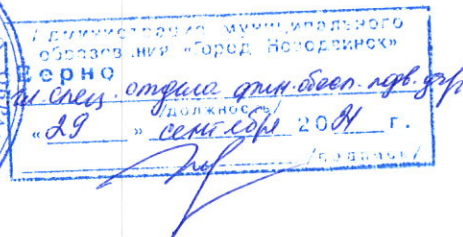 Администрация муниципального
образования «Город Новодвинск»
Верно
гл. спец. отдела фин. обесп. подв. учр.
/должность/
« 29 » сентября 2021 г.
/подпись/